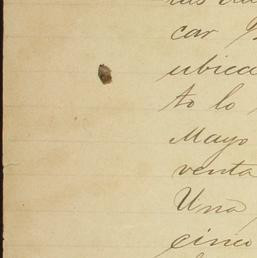 car
ubica
to lo
Mayo
venta
Una
cinco